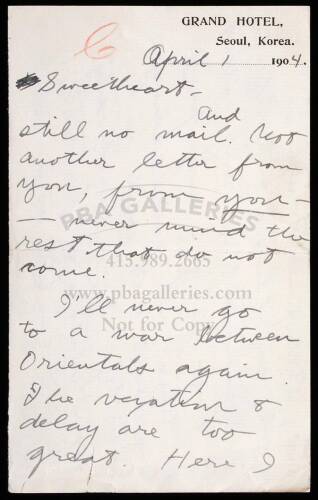 GRAND HOTEL,
Seoul, Korea.
April 1 1904.
Sweetheart -
And
still no mail. Not
another letter from
you, from you -
- never mind the
rest that do not
come.
I'll never go
to a war between
Orientals again.
The vexation &
delay are too
great. Here I
PBA GALLERIES
415.989.2665
www.pbagalleries.com
Not for Copy